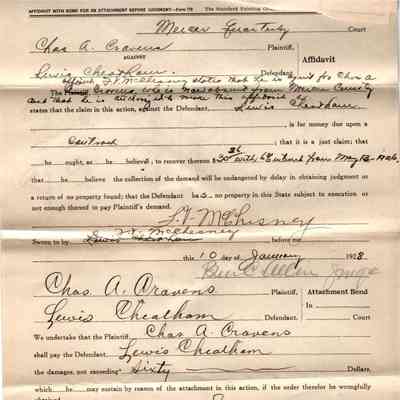 AFFIDAVIT WITH BOND FOR AN ATTACHMENT BEFORE JUDGMENT—Form 76 The Standard Printing Co.
Mercer Quarterly Court
Chas A. Cravens Plaintiff,
AGAINST Affidavit
Lewis Cheatham Defendant.
Affiant, L.V. McChesney states that he is agent for Chas A
The Plaintiff Cravens, who is now absent from Mercer County
and that he is authorized to make this affidavit
states that the claim in this action, against the Defendant Lewis Cheatham
, is for money due upon a
Contract ; that it is a just claim; that
he ought, as he believes, to recover thereon $30 with 6% interest from May 13-1926,
that he believe the collection of the demand will be endangered by delay in obtaining judgment or
a return of no property found; that the Defendant has no property in this State subject to execution or
not enough thereof to pay Plaintiff's demand.
L.V. McChesney
Sworn to by Lewis Cheatham L.V. McChesney before me
this 10 day of January 1928
Judge
Chas A. Cravens Plaintiff, Attachment Bond
In
Lewis Cheatham Defendant. Court
We undertake that the Plaintiff, Chas A. Cravens
shall pay the Defendant, Lewis Cheatham
the damages, not exceeding Sixty Dollars,
which he may sustain by reason of the attachment in this action, if the order therefor be wrongfully
obtained.